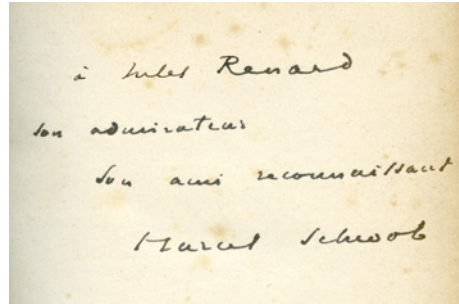 à Jules Renard
son admirateur
son ami reconnaissant
Marcel Schwob